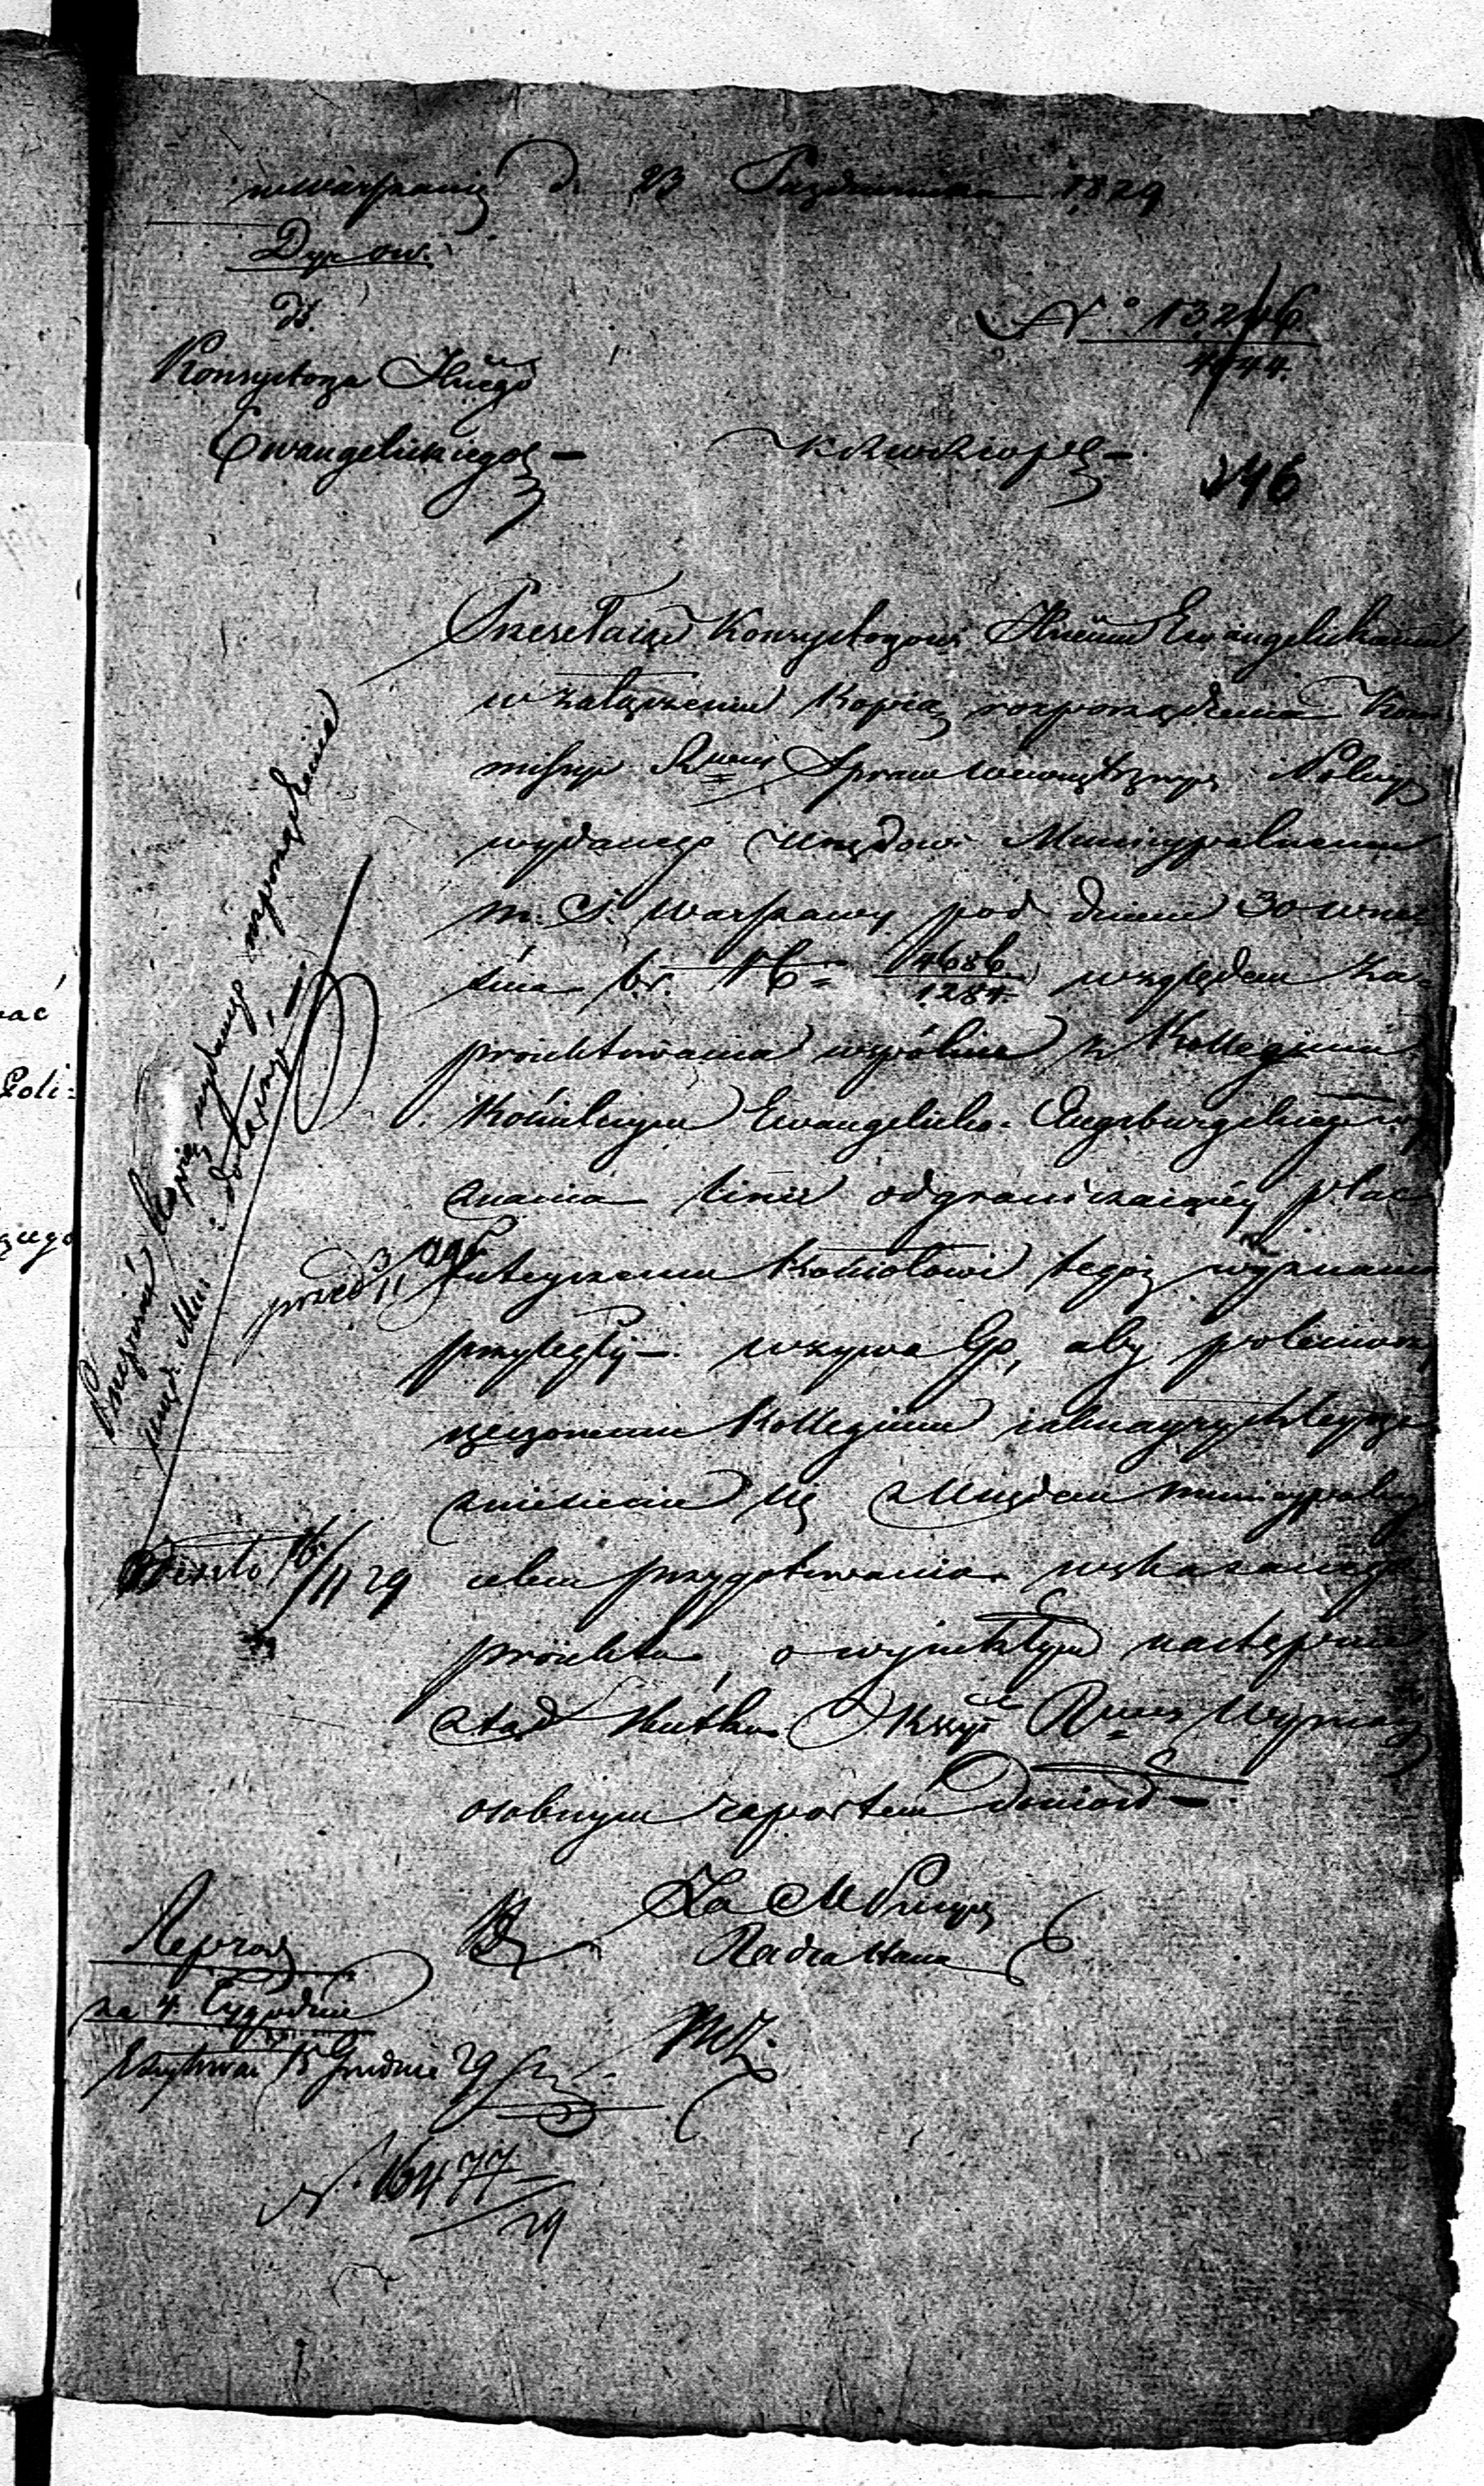 w Warszawie d. 23 Października 1829
Dyr. ow.
do
Konsystorza Jlnego
Ewangelickiego
No 13246
4944.
246
Przesełaiąc Konsystorzowi Jlnemu Ewangelickiemu
w załączeniu kopią rozporządzenia Kom
missyi Rząwey Spraw Wewnętrznych i Policyi
wydanego Urzędowi Municypalnemu
m. S. Warszawy pod dniem 30 Wrze
śnia br. No 4686/1284. względem za-
proiektowania wspólnie z Kollegium
Kościelnym Ewangelicko-Augsburgskiego wy
znania linii odgraniczaiącéy plac
tuteyszemu Kościołowi tegoż wyznania
przyległy - wzywa Go, aby polecił
rzeczonemu Kollegium iaknayrychleysze
zniesienie się z Urzędem Municypalnym
celem przygotowania wskazanego
proiektu, o wynikłym następnie
ztąd skutku Kssyi Rząwey Wyznań
osobnym raportem doniosł -
Za Ministra
Radca Stanu
Przepisać kopią wydanego rozporządzenia
Urzęd. Mun: dołączyć
przed 3/11 Ag
Weszło 16/11 29
Reprod.
za 4. Tygodnie
Excytować 15 Grudnia 29
N. 16477/29